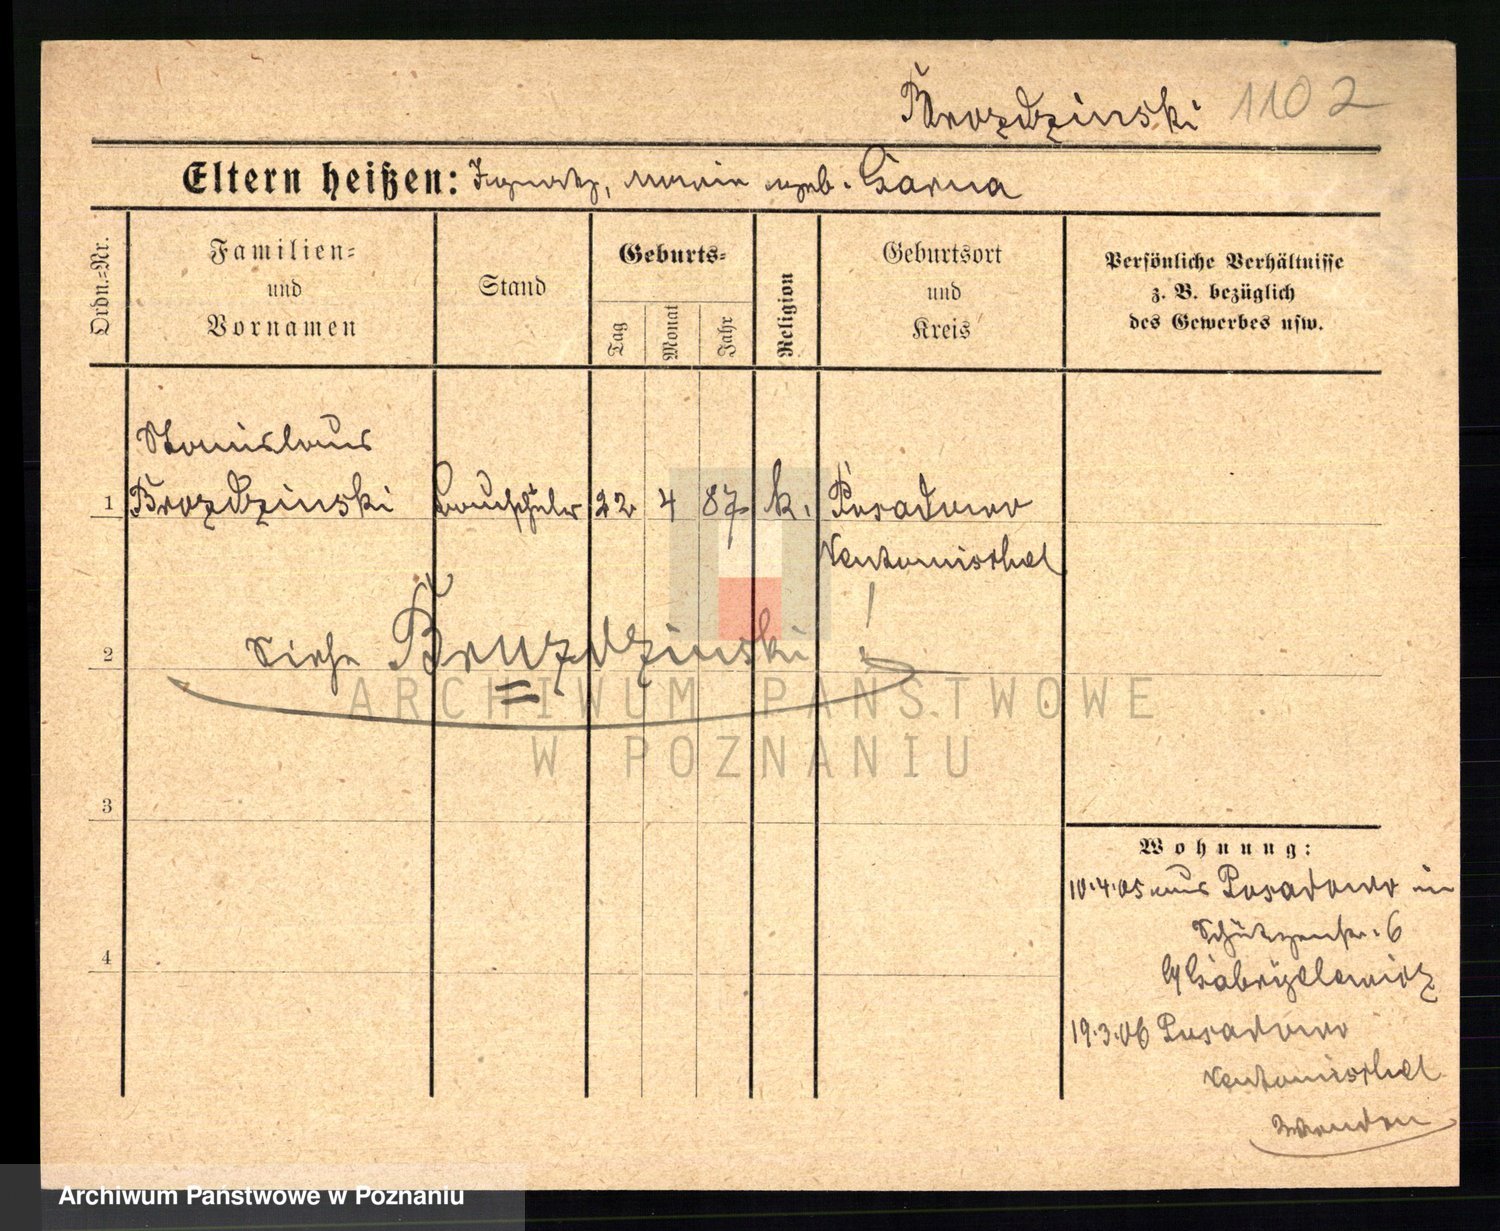 Brozdzinski 1102
Eltern heißen: Ignatz, Marie geb. Garna
Ordn.=Nr.
Familien=
und
Vornamen
Stand
Geburts=
Tag
Monat
Jahr
Religion
Geburtsort
und
Kreis
Persönliche Verhältnisse
z. B. bezüglich
des Gewerbes usw.
Stanislaus
1 Brozdzinski Bauschüler 22 4 87 k. Posadowo
Neutomischel
2 Siehe Bruzdzinski!
3
4
Wohnung:
10.4.05 aus Posadowo in
Schützenstr. 6
b/ Gabryelewicz
19.3.06 Posadowo
Neutomischel
wenden
ARCHIWUM PAŃSTWOWE
W POZNANIU
Archiwum Państwowe w Poznaniu